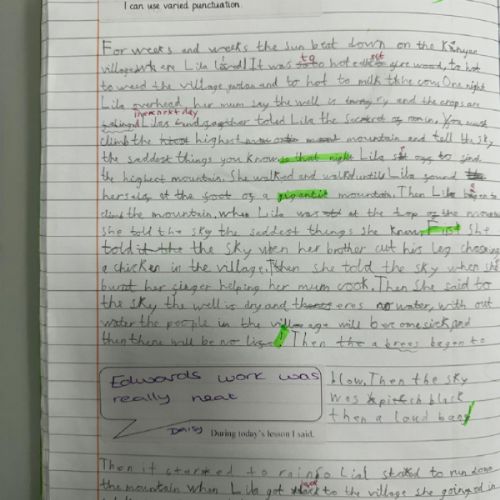 I can use varied punctuation.
For weeks and weeks the sun beat down on the Kenyan
village where Lila lived! It was to hot get fire wood, to hot
to weed the village and to hot to milk the cow One night
Lila overhead her mum say the well is dry and the crops are
the next day Lilas told Lila the Secret of You must
climb the highest mountain and tell the sky
the saddest things you know that night Lila set to find
the highest mountain. She walked and walked until Lila found the
herself at the foot of a gigantic mountain. Then Lila began to
climb the mountain, when Lila was at the top of the
she told the sky the saddest things she know First She
told the sky when her brother cut his leg chasing
a chicken in the village. Then she told the sky when she
burnt her finger helping her mum cook. Then She said to
the sky the well is dry and no water, with out
water the people in the village will and
then there will be no Then the a breeze began to
Edwards work was
really neat
Daisy
During today's lesson I said.
blow. Then the sky
was pitch black
then a loud bang
Then it started to rain so started to run down
the mountain when Lila got back to the village she in